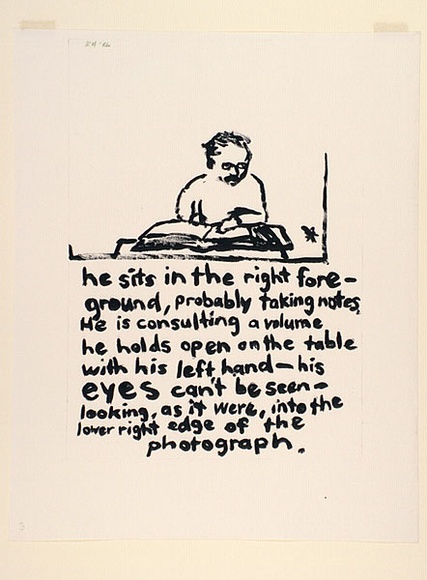 he sits in the right fore-
ground, probably taking notes.
He is consulting a volume
he holds open on the table
with his left hand — his
eyes can't be seen -
looking, as it were, into the
lower right edge of the
photograph.